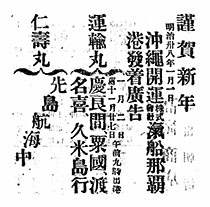 謹賀新年
明治卅八年一月一日
沖繩開運株式會社滊船那覇
港發着廣告
運輸丸
一月二日
舊十一月廿七日午前九時出港
慶良間、粟國、渡
名喜、久米島行
仁壽丸
先島航海中